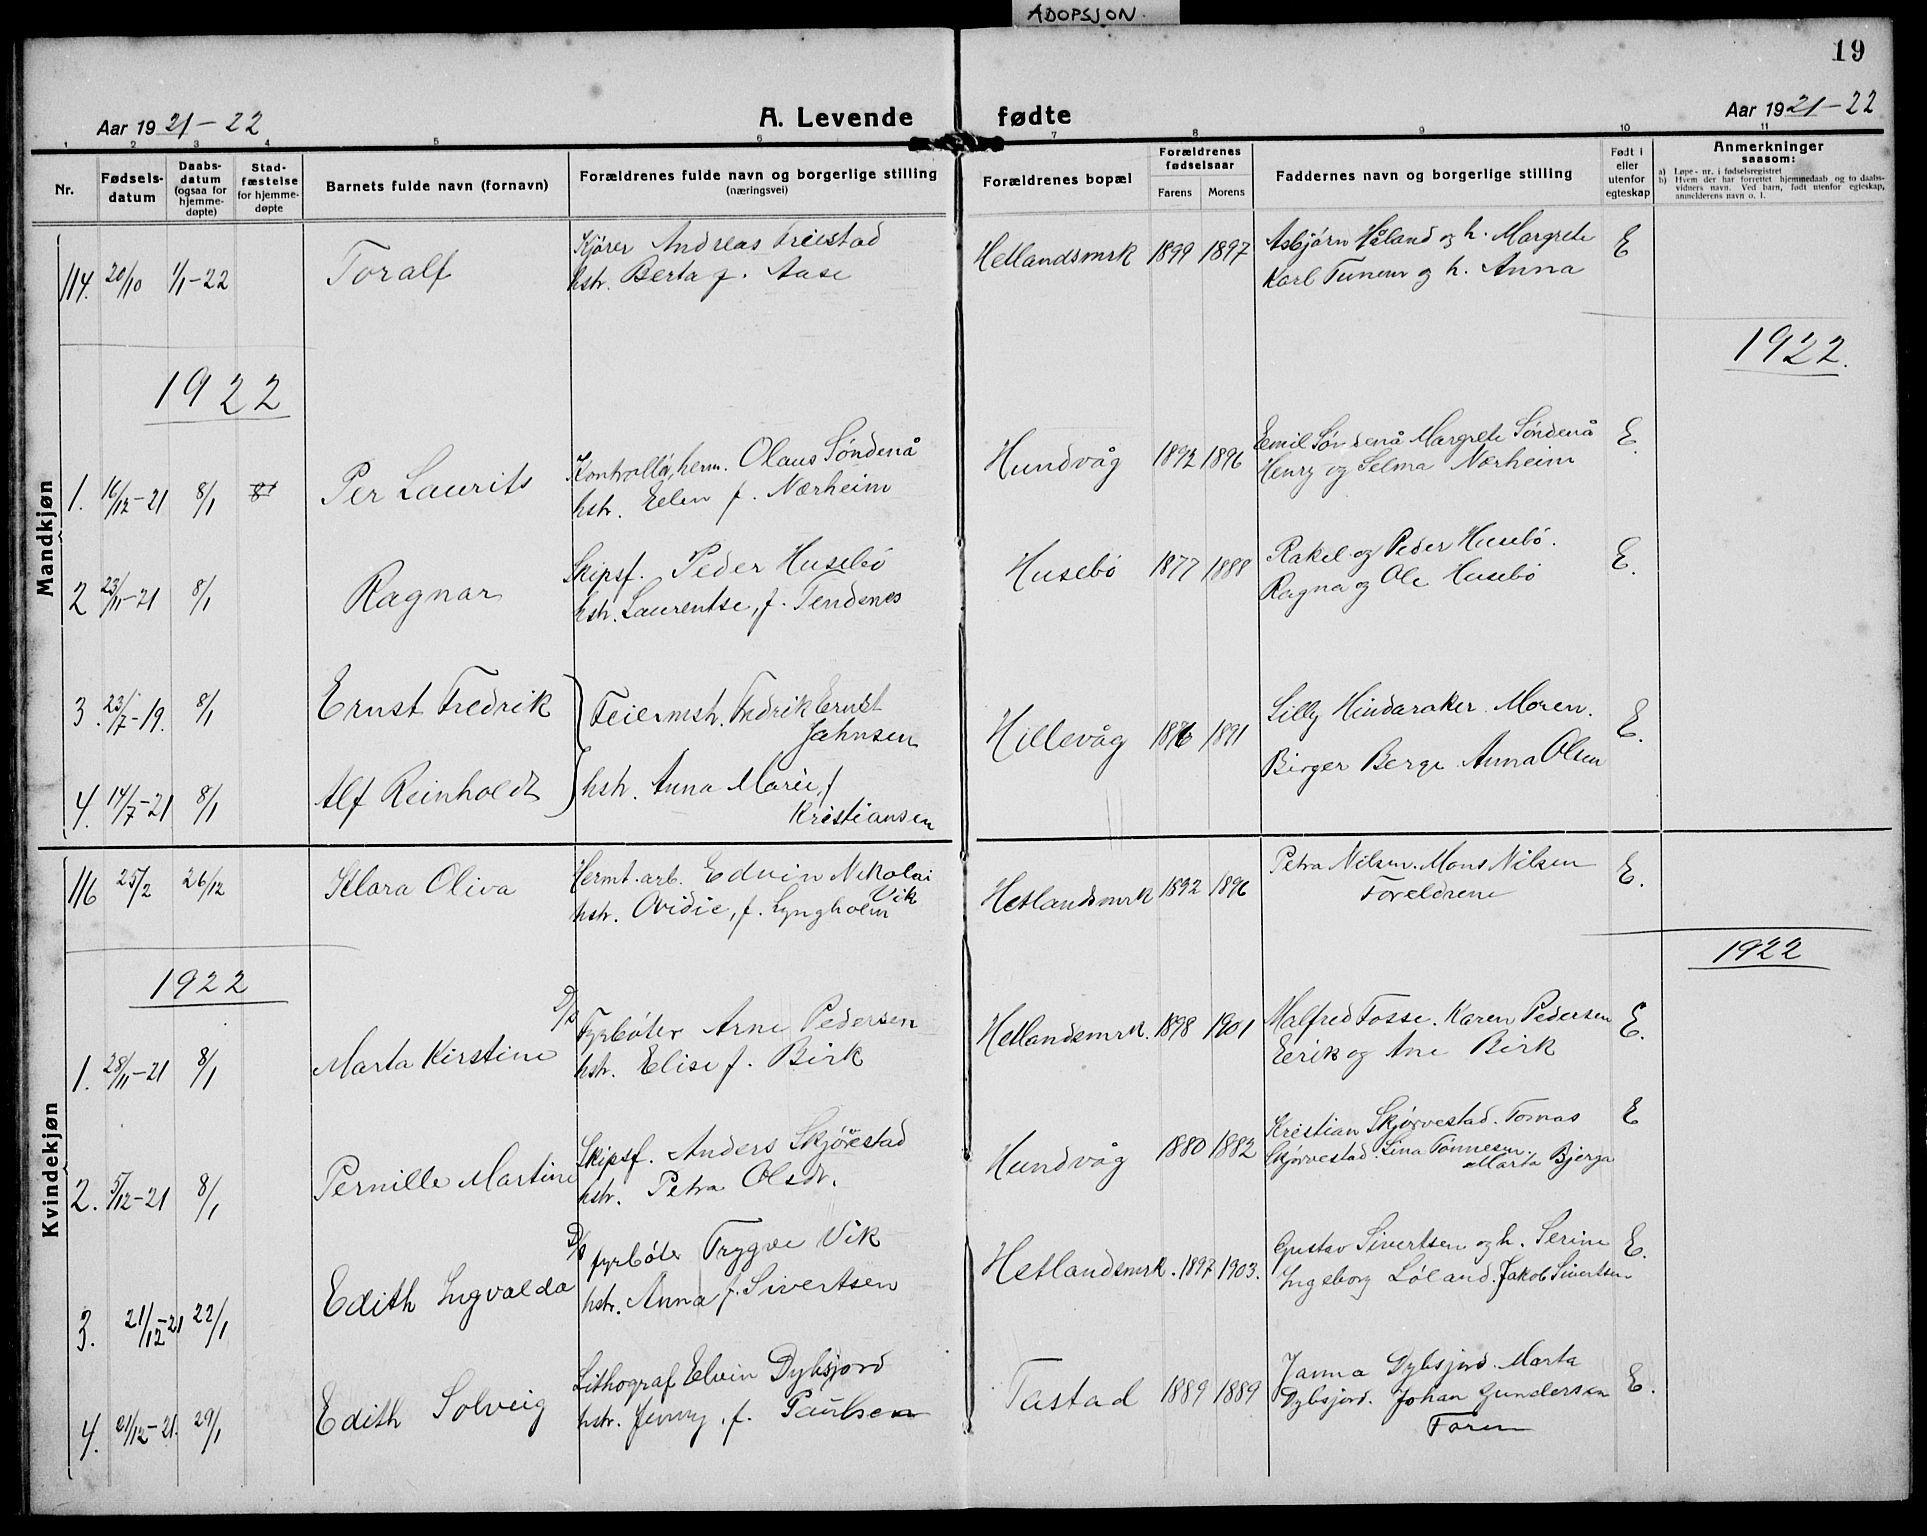 ADOPSJON.
19
Aar 1921-22
A. Levende fødte
Aar 1921-22
1 2 3 4 5 6 7 8 9 10 11
Nr.
Fødsels-
datum
Daabs-
datum
(ogsaa for
hjemme-
døpte)
Stad-
fæstelse
for hjemme-
døpte
Barnets fulde navn (fornavn)
Forældrenes fulde navn og borgerlige stilling
(næringsvei)
Forældrenes bopæl
Forældrenes
fødselsaar
Farens Morens
Faddernes navn og borgerlige stilling
Født i
eller
utenfor
egteskap
Anmerkninger
saasom:
a) Løpe-nr. i fødselsregistret
b) Hvem der har forrettet hjemmedaab og to daabs-
vidners navn. Ved barn, født utenfor egteskap,
anmelderens navn o. l.
Mandkjøn
114. 20/10 1/1-22 Toralf
Kjører Andreas Freistad
hstr. Berta f. Aase
Hetlandsmrk 1899 1897
Asbjørn Håland og h. Margrete
Karl Tunem og h. Anna
E
1922
1922.
1. 16/12-21 8/1 Per Laurits
Kontrollør, herm. Olaus Söndenå
hstr. Elen f. Nærheim
Hundvåg 1892 1896
Emil Söndenå Margrete Söndenå
Henry og Selma Nærheim
E.
2 23/11-21 8/1 Ragnar
Skipsf. Peder Husebö
hstr. Laurentse, f. Tendenes
Husebö 1877 1888
Rakel og Peder Husebö.
Ragna og Ole Husebö
E.
3. 23/7-19. 8/1 Ernst Fredrik
Feiermstr. Fredrik Ernst
Jahnsen
4. 14/7-21 8/1 Alf Reinholdt
hstr. Anna Marie, f
Kristiansen
Hillevåg 1876 1891
Lilly Hindaraker. Moren.
Birger Berge Anna Olsen
E.
Kvindekjøn
116 25/2 26/12 Klara Oliva
Hermt. arb. Edvin Nikolai
Vik
hstr. Ovidie, f. Lyngholm
Hetlandsmrk 1892 1896
Petra Nilsen. Mons Nilsen
Foreldrene
E.
1922
1922
1. 28/11-21 8/1 Marta Kirstine
D/s
Fyrböter Arne Pedersen
hstr. Elise f. Birk
Hetlandsmrk. 1898 1901
Malfred Fosse. Karen Pedersen
Eerik og Ane Birk
E.
2. 5/12-21 8/1 Pernille Martine
Skipsf. Anders Skjörvestad
hstr. Petra Olsdr.
Hundvåg 1880 1882
Kristian Skjörvestad. Tomas
Skjörvestad. Lina Tönnesen.
Marta Bjerga
E
3. 21/12-21 22/1 Edith Ingvalda
D/s fyrböter Trygve Vik
hstr. Anna f. Sivertsen
Hetlandsmrk. 1897 1903.
Gustav Sivertsen og h. Serine
Ingeborg Löland. Jakob Sivertsen
E.
4. 21/12-21. 29/1 Edith Solveig
Lithograf Elvin Dybsjord
hstr. Jenny, f. Paulsen
Tastad 1889 1889
Janna Dybsjord. Marta
Dybsjord. Johan Gundersen
Faren
E.